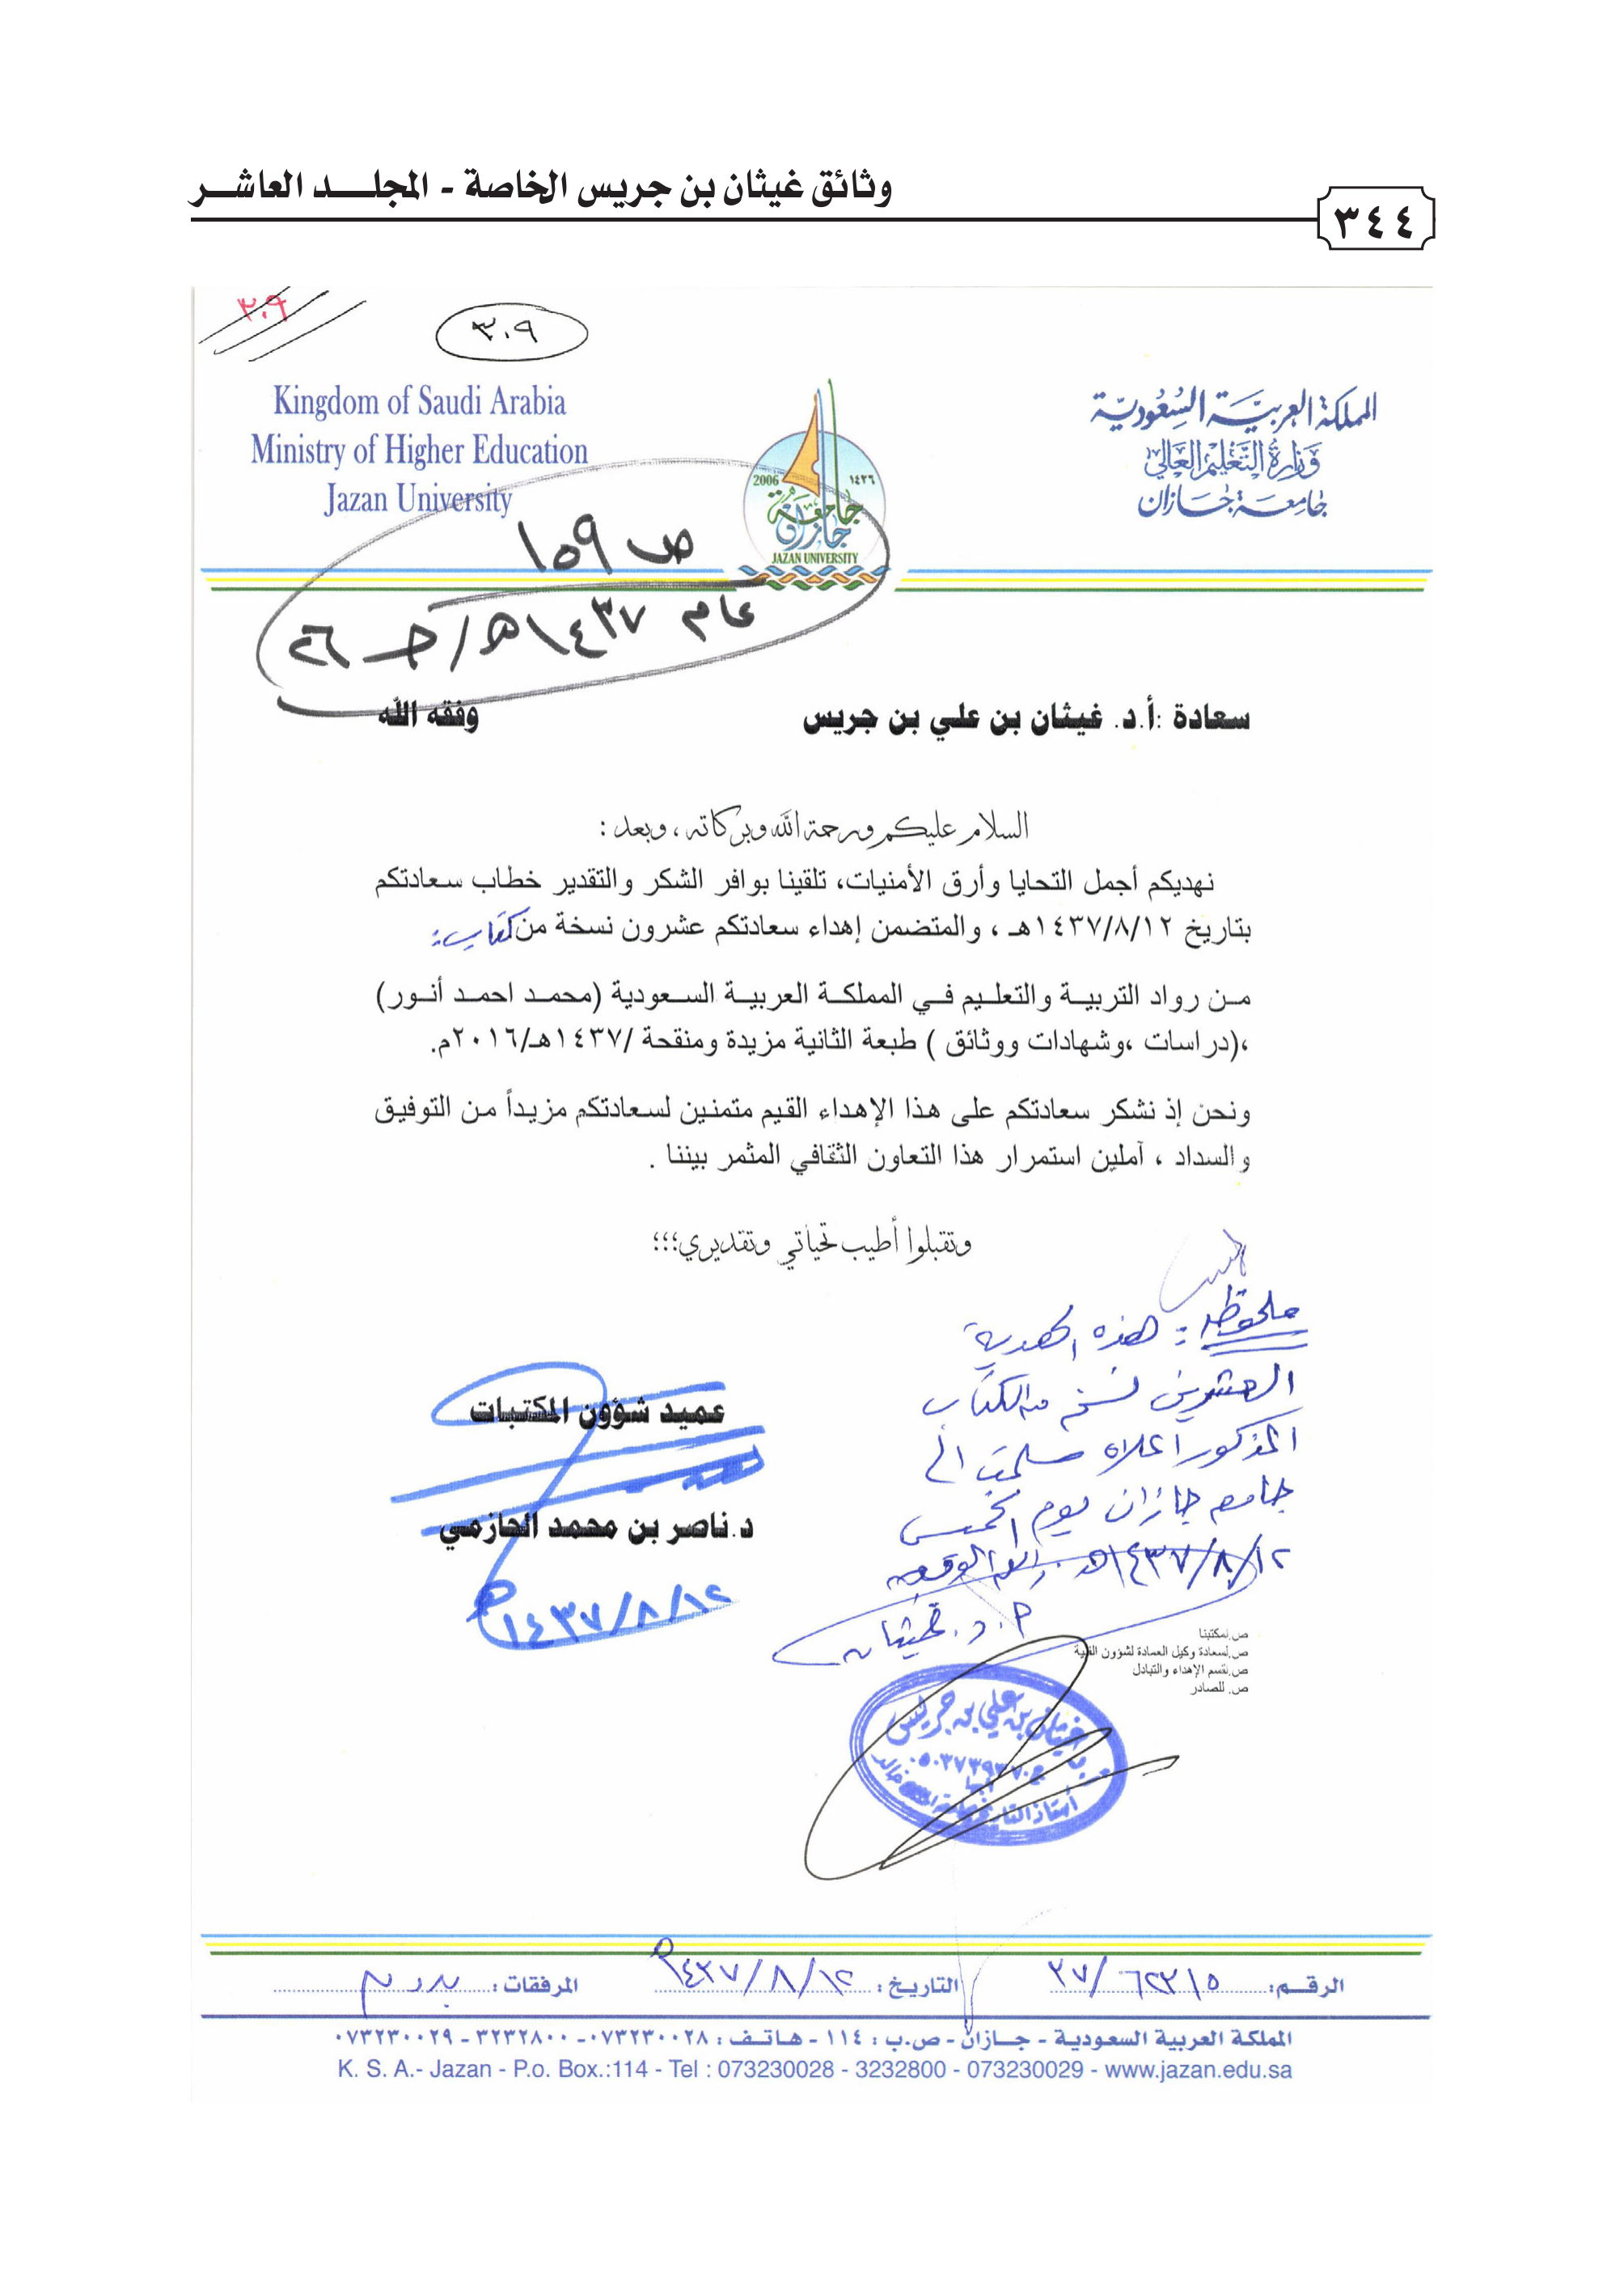 وثائق غيثان بن جريس الخاصة - المجلـــد العاشــر
٣٤٤
٣٠٩
٣٠٩
Kingdom of Saudi Arabia
Ministry of Higher Education
Jazan University
المملكة العربية السعودية
وزارة التعليم العالي
جامعة جازان
2006
١٤٢٦
جامعة
جازان
JAZAN UNIVERSITY
ص ١٥٩
عام ١٤٣٧هـ/ جـ ٢٦
سعادة :أ.د. غيثان بن علي بن جريس وفقه الله
السلام عليكم ورحمة الله وبركاته ، وبعد :
نهديكم أجمل التحايا وأرق الأمنيات، تلقينا بوافر الشكر والتقدير خطاب سعادتكم
بتاريخ ١٤٣٧/٨/١٢هـ ، والمتضمن إهداء سعادتكم عشرون نسخة من كتاب :
مـن رواد التربيـة والتعلـيم فـي المملكـة العربيـة السـعودية (محمـد احمـد أنـور)
،(دراسات ،وشهادات ووثائق ) طبعة الثانية مزيدة ومنقحة /١٤٣٧هـ/٢٠١٦م.
ونحن إذ نشكر سعادتكم على هذا الإهداء القيم متمنين لسعادتكم مزيداً من التوفيق
والسداد ، آملين استمرار هذا التعاون الثقافي المثمر بيننا .
وتقبلوا أطيب تحياتي وتقديري؛؛؛
ملحوظة : هذه الهدية
العشرين نسخة من الكتاب
المذكور اعلاه سلمت الى
جامعة جازان يوم الخميس
١٤٣٧/٨/١٢هـ
أ.د. غيثان
عميد شؤون المكتبات
د.ناصر بن محمد الحازمي
١٤٣٧/٨/١٢هـ
ص.لمكتبنا
ص.لسعادة وكيل العمادة لشؤون الفنية
ص.لقسم الإهداء والتبادل
ص. للصادر
غيثان بن علي بن جريس
أبها
الرقــم: ٣٧/٦٢٣١٥ التاريـخ : ١٤٣٧/٨/١٢هـ المرفقات :
المملكة العربية السعودية - جــازان - ص.ب : ١١٤ - هـاتـف : ٠٧٣٢٣٠٠٢٨- ٣٢٣٢٨٠٠ - ٠٧٣٢٣٠٠٢٩
K. S. A.- Jazan - P.o. Box.:114 - Tel : 073230028 - 3232800 - 073230029 - www.jazan.edu.sa